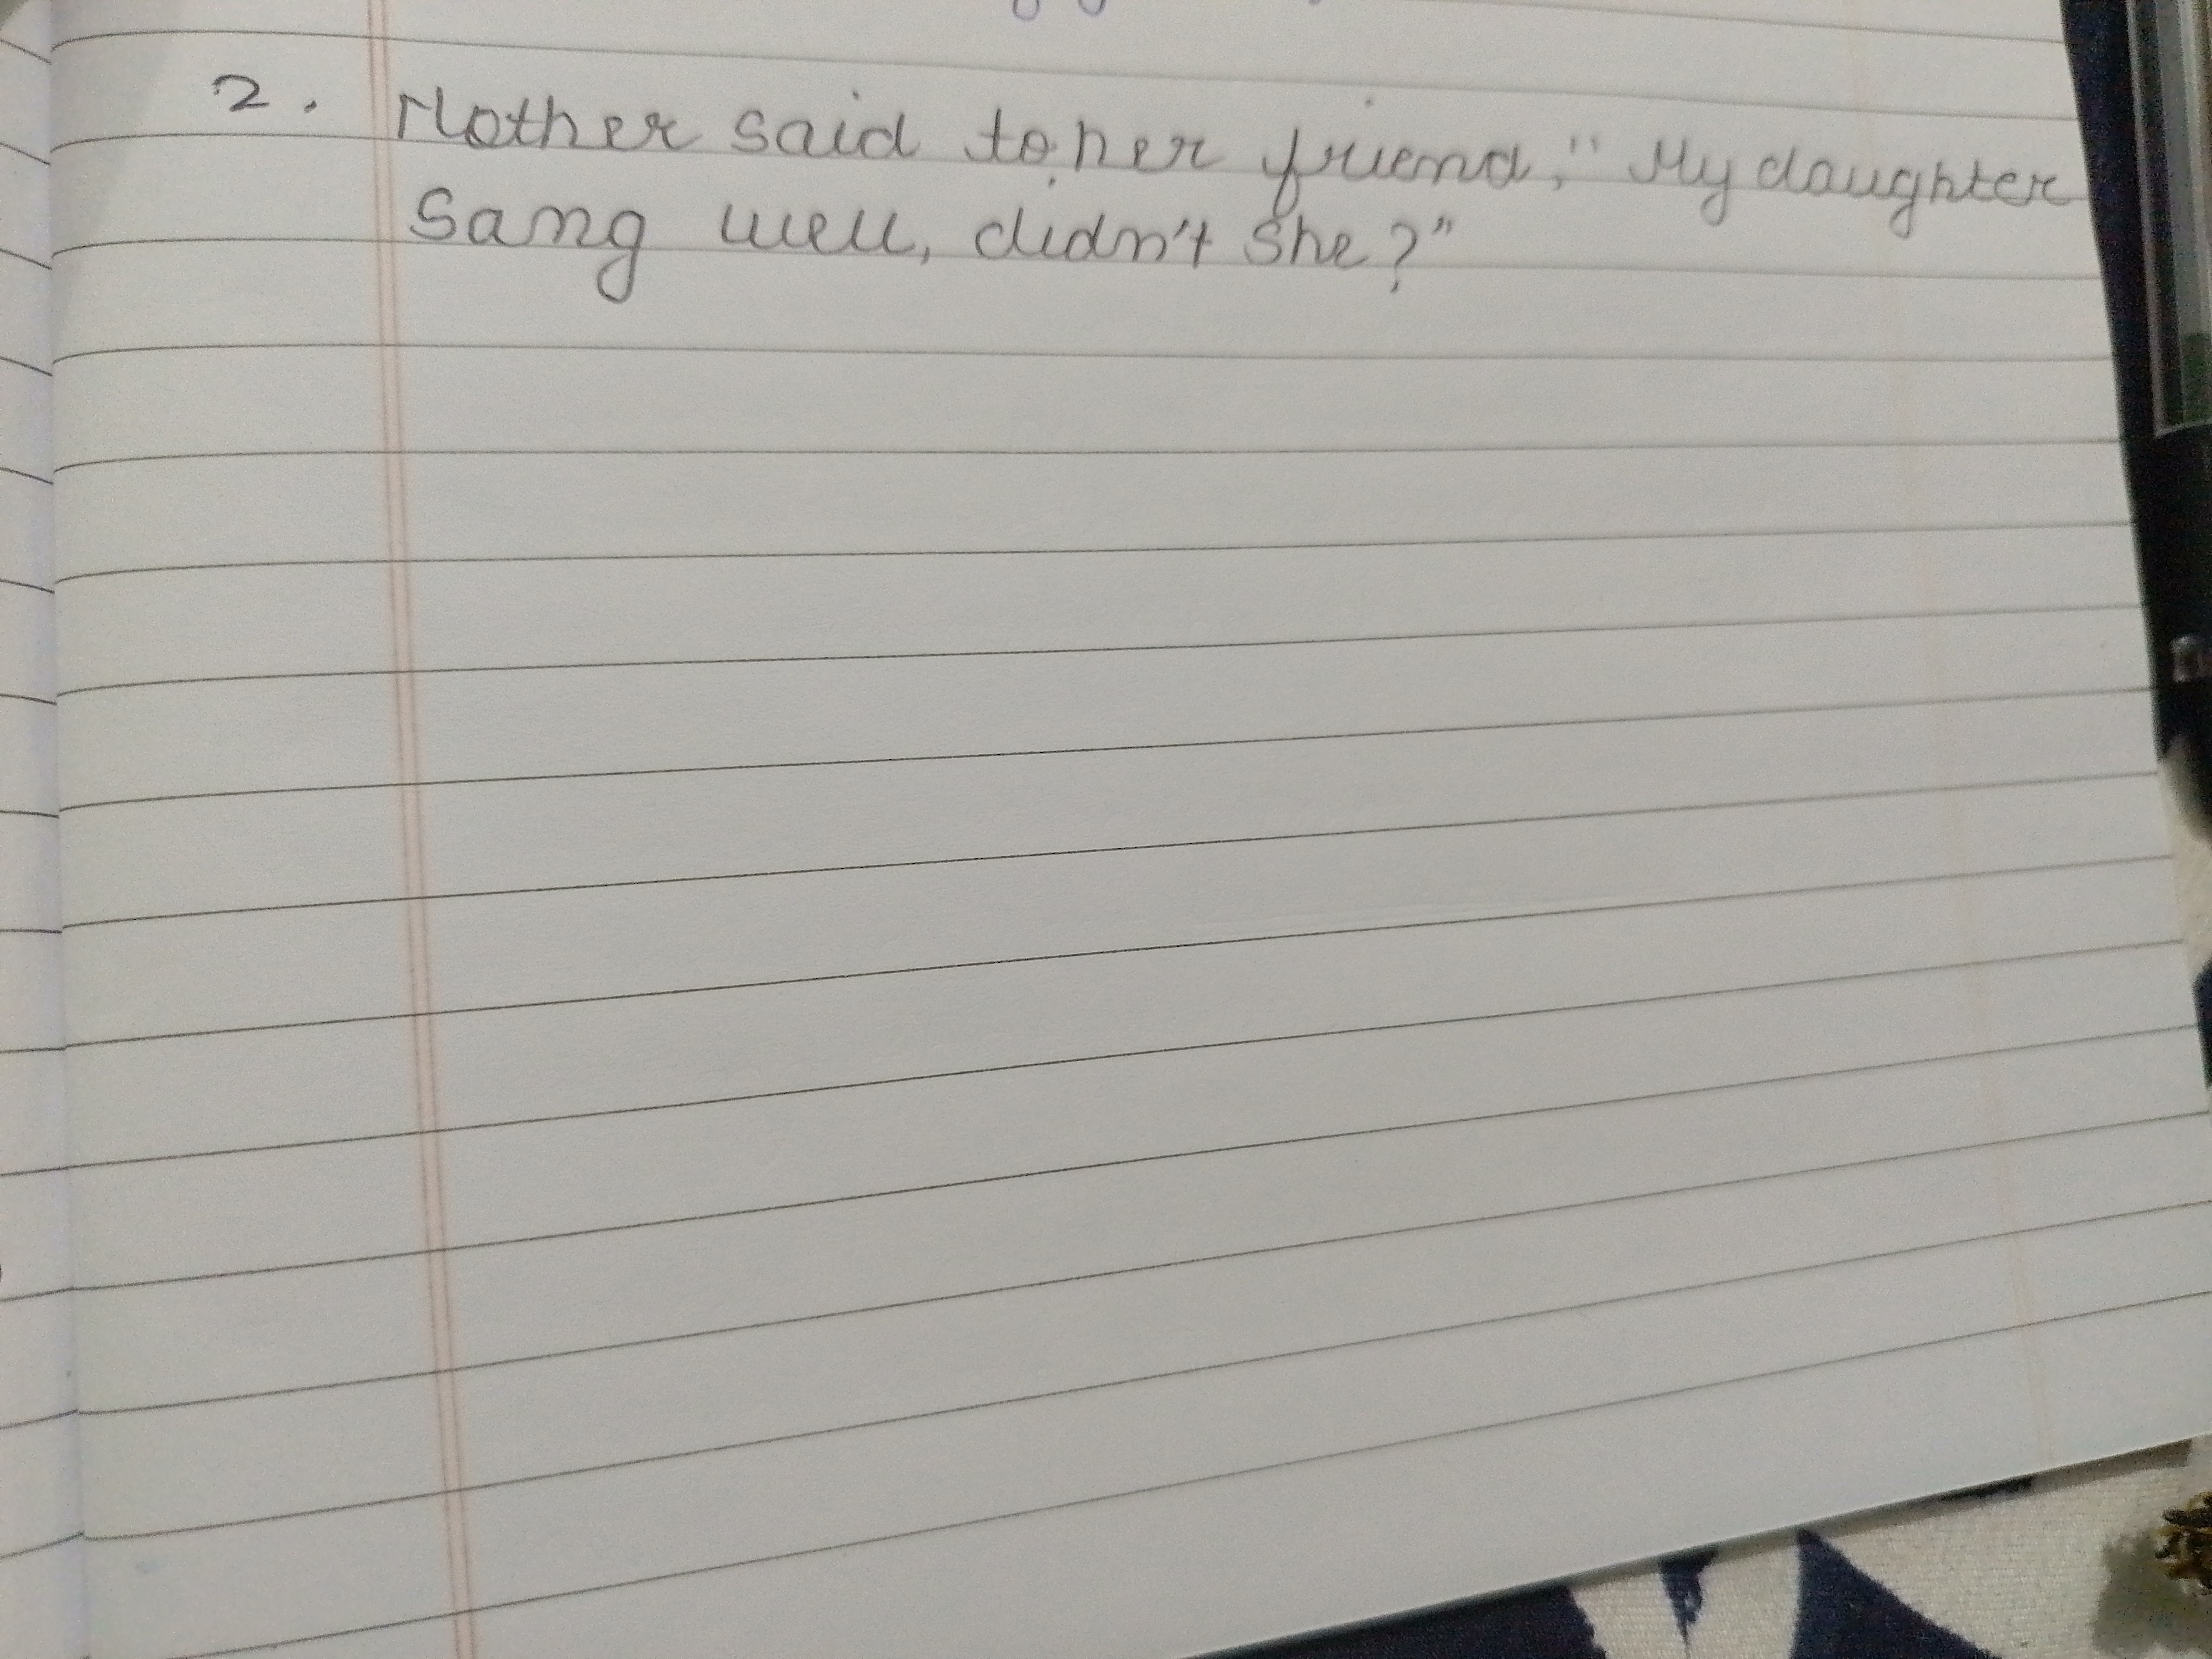 2. Mother said to her friend, " My daughter
Sang well, didn't She?"